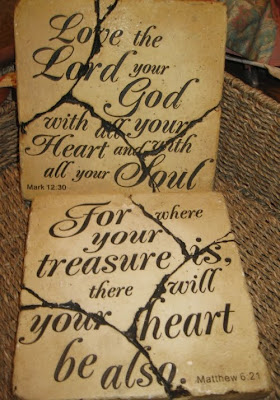 Love the
Lord your
God
with all your
Heart and with
all your Soul
Mark 12:30
For where
your
treasure is,
there will
your heart
be also.
Matthew 6:21